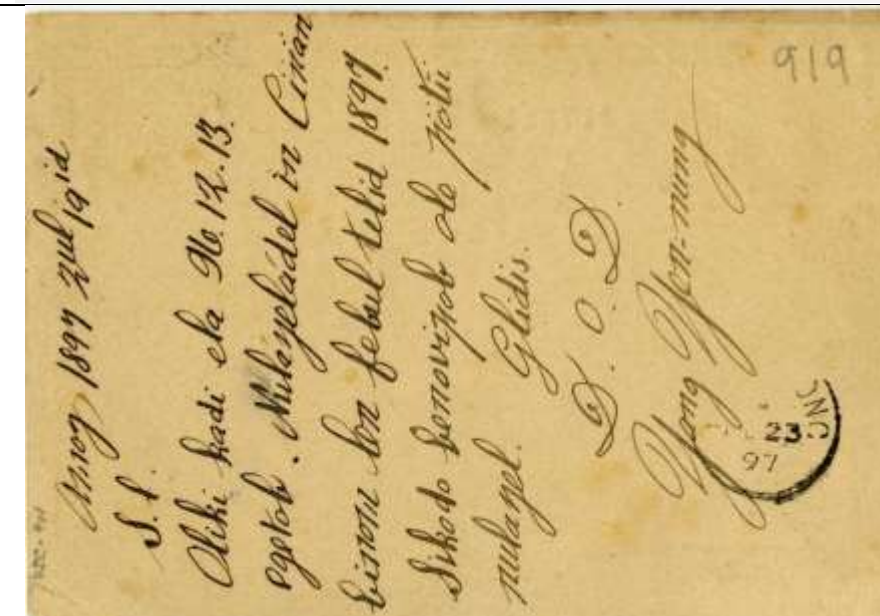 Amoy 1897 zul 19id
S. l.
Oliki kadi ela 96. 12. 13.
egetob. Nulayeladel in Cinän
binom lon febul telid 1897.
Sikodo benovipob ole pötü
nulayel. Glidis.
D. O. D.
Yen-nung
919
23
97